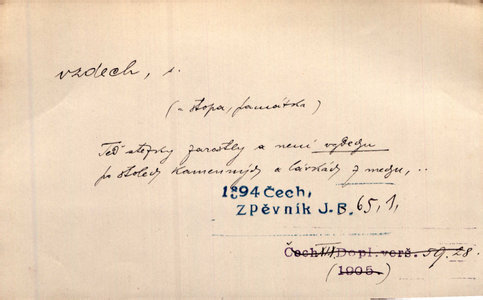 vzdech, s.
(= stopa, památka)
Teď stezky zarostly a není vzdechu
po stoletý kamenných a lávkách z mechu, ..
1894 Čech,
Zpěvník J. B. 65, 1,
Čech III, Dopl. verš. 59. 28.
(1905.)